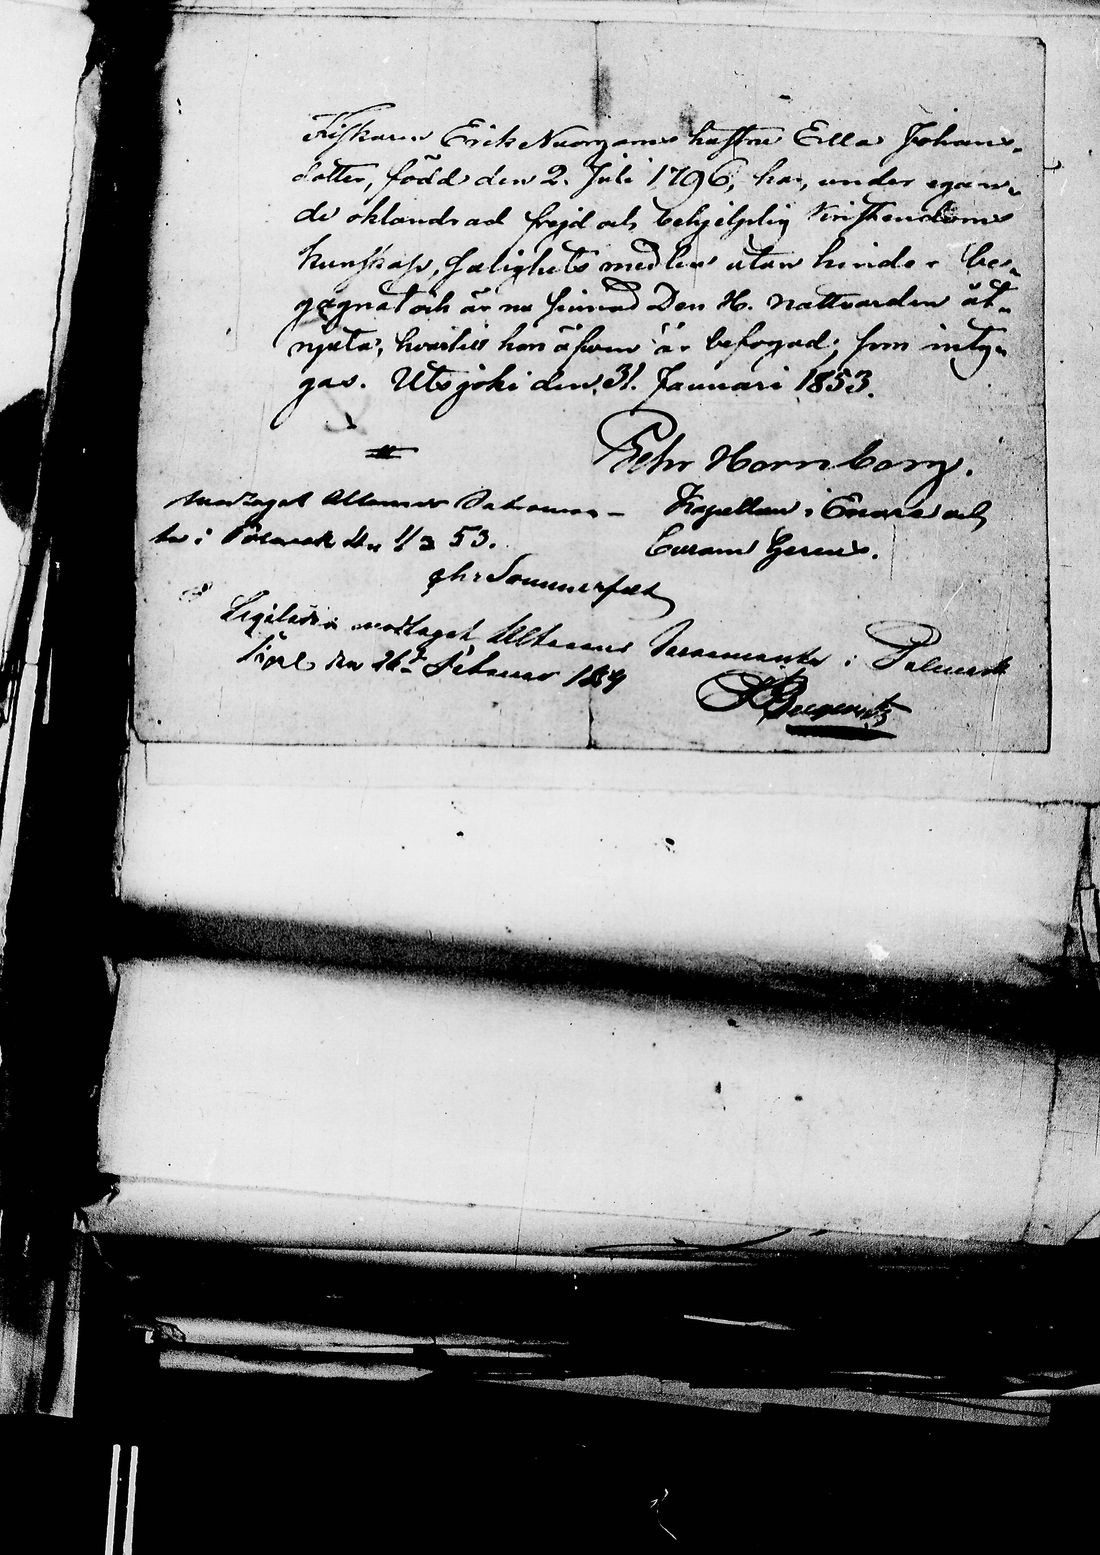 Fiskaren Erik Nuorgams hustru Ella Johans-
dotter, född den 2. Juli 1796, har, under egan-
de oklandrad frejd och behjelplig Kristendoms
kunskap, salighets medlen utan hinder be-
gagnat och är nu sinnad Den H. nattvarden åt-
njuta, hvartill hon äfven är befogad; som inty-
gas. Utsjoki den 31. Januari 1853.
Pehr Hornborg.
Kapellan i Enare och
Curam Gerens.
modtaget Alterens Sakramen-
te i Polmak den 53.
Sommerfelt
Ligeledes modtaget Alterens Sacramente i Polmak
den 26de Februar